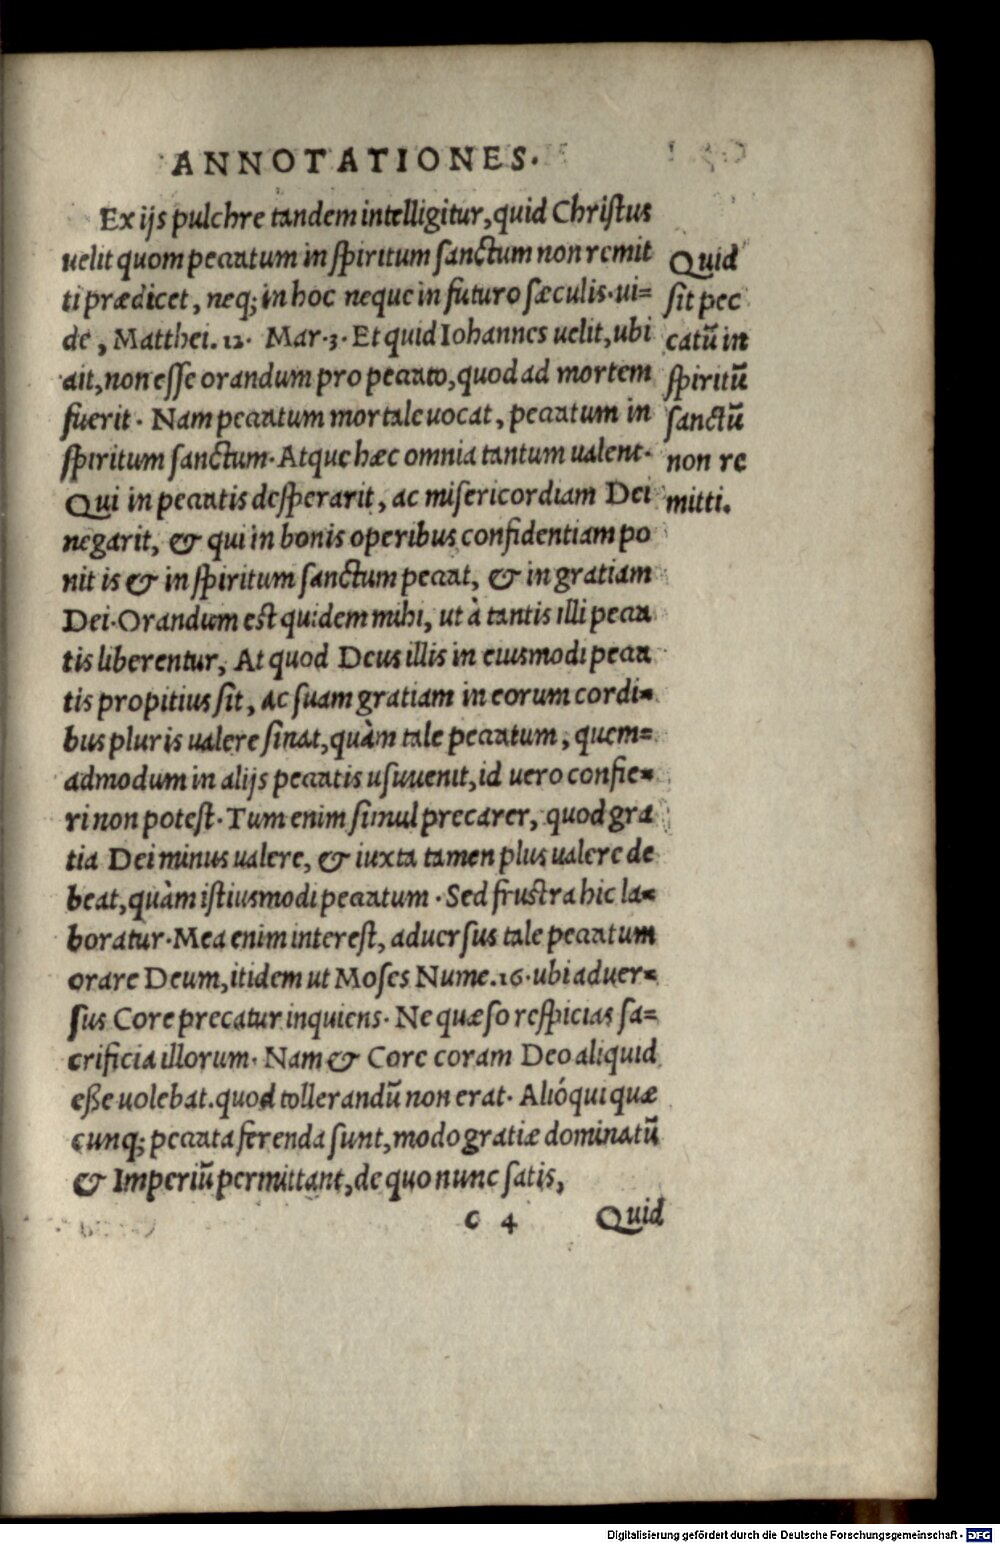 ANNOTATIONES.
Ex ijs pulchre tandem intelligitur, quid Christus
uelit quom peccatum in spiritum sanctum non remit
ti prædicet, neq; in hoc neque in futuro sæculis. ui=
de, Matthei. 12. Mar. 3. Et quid Iohannes uelit, ubi
ait, non esse orandum pro peccato, quod ad mortem
fuerit. Nam peccatum mortale uocat, peccatum in
spiritum sanctum. Atque hæc omnia tantum ualent.
Qui in peccatis desperarit, ac misericordiam Dei
negarit, & qui in bonis operibus confidentiam po
nit is & in spiritum sanctum peccat, & in gratiam
Dei. Orandum est quidem mihi, ut à tantis illi pecca
tis liberentur, At quod Deus illis in eiusmodi pecca
tis propitius sit, ac suam gratiam in eorum cordi=
bus pluris ualere sinat, quàm tale peccatum, quem=
admodum in alijs peccatis usuuenit, id uero confie=
ri non potest. Tum enim simul precarer, quod gra
tia Dei minus ualere, & iuxta tamen plus ualere de
beat, quàm istiusmodi peccatum. Sed frustra hic la=
boratur. Mea enim interest, aduersus tale peccatum
orare Deum, itidem ut Moses Nume. 16. ubi aduer=
sus Core precatur inquiens. Ne quæso respicias sa=
crificia illorum. Nam & Core coram Deo aliquid
eße uolebat. quod tollerandũ non erat. Alióqui quæ
cunq; peccata ferenda sunt, modo gratiæ dominatũ
& Imperiũ permittant, de quo nunc satis,
c 4 Quid
Quid
sit pec
catũ in
spiritũ
sanctũ
non re
mitti.
Digitalisierung gefördert durch die Deutsche Forschungsgemeinschaft - DFG